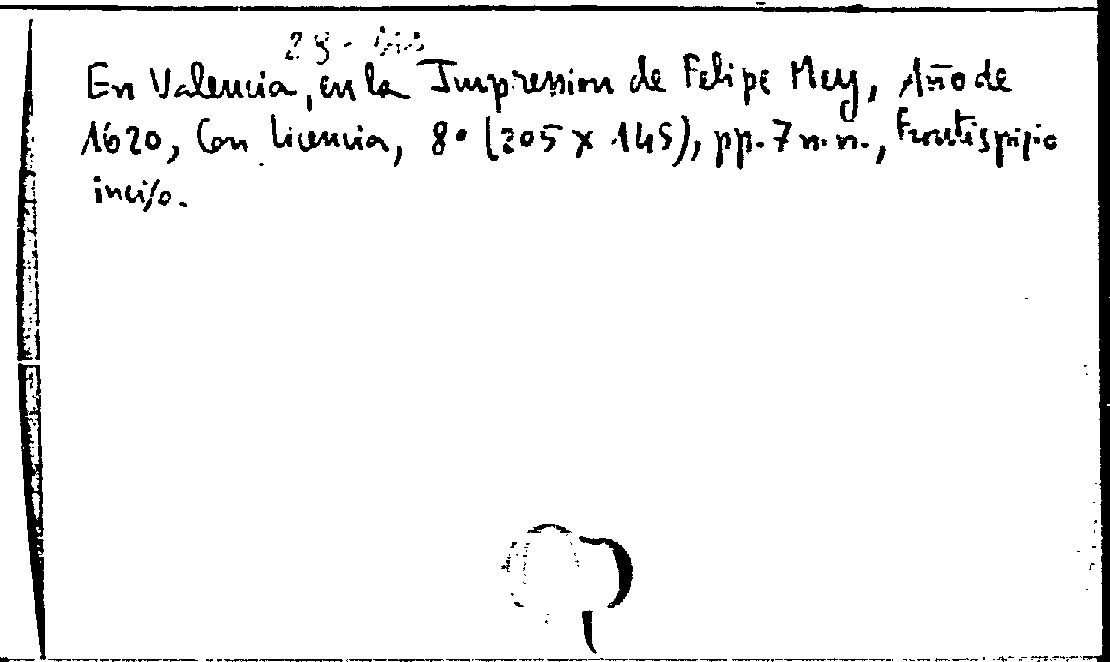 En Valencia, en la Impression de Felipe Mey, Año de
1620, Con licencia, 8° (205 x 145), pp. 7 n.n., Frontispizio
inciso.